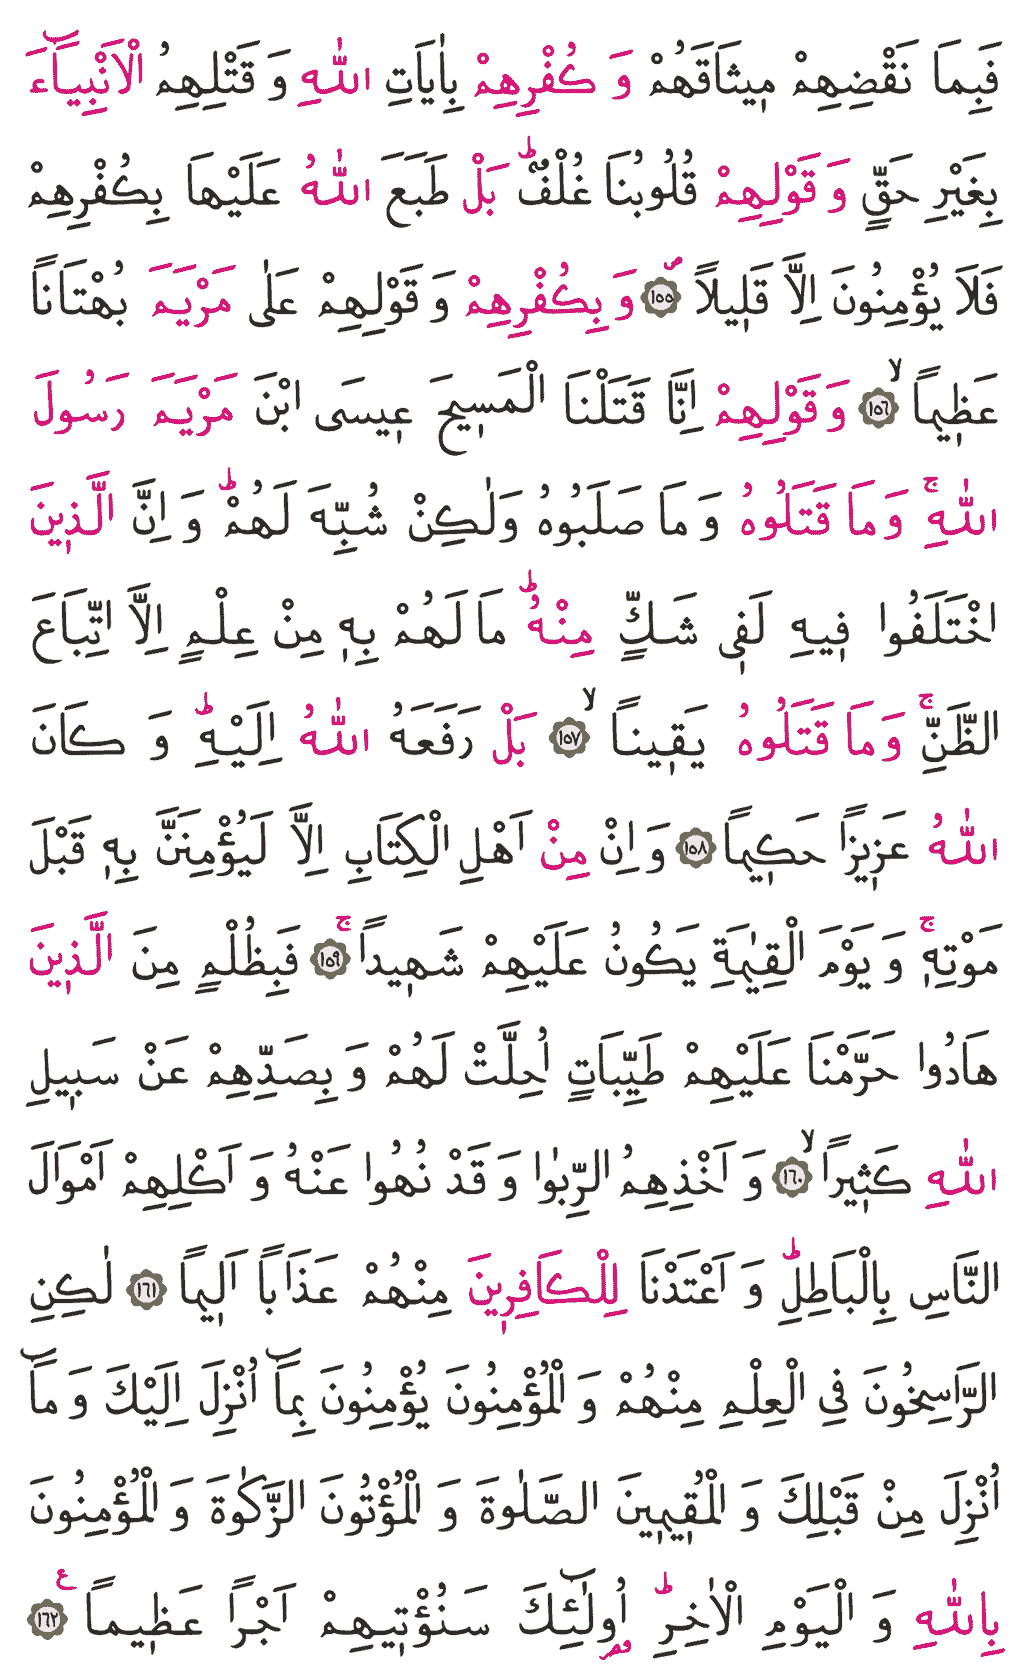 فَبِمَا نَقْضِهِمْ م۪يثَاقَهُمْ وَ كُفْرِهِمْ بِاٰيَاتِ اللّٰهِ وَ قَتْلِهِمُ الْاَنْبِيَٓاءَ
بِغَيْرِ حَقٍّ وَ قَوْلِهِمْ قُلُوبُنَا غُلْفٌۜ بَلْ طَبَعَ اللّٰهُ عَلَيْهَا بِكُفْرِهِمْ
فَلَا يُؤْمِنُونَ اِلَّا قَل۪يلاًۖ ﴿١٥٥﴾ وَ بِكُفْرِهِمْ وَ قَوْلِهِمْ عَلٰى مَرْيَمَ بُهْتَانًا
عَظ۪يمًاۙ ﴿١٥٦﴾ وَ قَوْلِهِمْ اِنَّا قَتَلْنَا الْمَس۪يحَ ع۪يسَى ابْنَ مَرْيَمَ رَسُولَ
اللّٰهِۚ وَ مَا قَتَلُوهُ وَ مَا صَلَبُوهُ وَلٰكِنْ شُبِّهَ لَهُمْۜ وَ اِنَّ الَّذ۪ينَ
اخْتَلَفُوا ف۪يهِ لَف۪ي شَكٍّ مِنْهُۜ مَا لَهُمْ بِه۪ مِنْ عِلْمٍ اِلَّا اتِّبَاعَ
الظَّنِّۚ وَ مَا قَتَلُوهُ يَق۪ينًاۙ ﴿١٥٧﴾ بَلْ رَفَعَهُ اللّٰهُ اِلَيْهِۜ وَ كَانَ
اللّٰهُ عَز۪يزًا حَك۪يمًا ﴿١٥٨﴾ وَ اِنْ مِنْ اَهْلِ الْكِتَابِ اِلَّا لَيُؤْمِنَنَّ بِه۪ قَبْلَ
مَوْتِه۪ۚ وَ يَوْمَ الْقِيٰمَةِ يَكُونُ عَلَيْهِمْ شَه۪يدًاۚ ﴿١٥٩﴾ فَبِظُلْمٍ مِنَ الَّذ۪ينَ
هَادُوا حَرَّمْنَا عَلَيْهِمْ طَيِّبَاتٍ اُحِلَّتْ لَهُمْ وَ بِصَدِّهِمْ عَنْ سَب۪يلِ
اللّٰهِ كَث۪يرًاۙ ﴿١٦٠﴾ وَ اَخْذِهِمُ الرِّبٰوا وَ قَدْ نُهُوا عَنْهُ وَ اَكْلِهِمْ اَمْوَالَ
النَّاسِ بِالْبَاطِلِۜ وَ اَعْتَدْنَا لِلْكَافِر۪ينَ مِنْهُمْ عَذَابًا اَل۪يمًا ﴿١٦١﴾ لٰكِنِ
الرَّاسِخُونَ فِي الْعِلْمِ مِنْهُمْ وَ الْمُؤْمِنُونَ يُؤْمِنُونَ بِمَٓا اُنْزِلَ اِلَيْكَ وَ مَٓا
اُنْزِلَ مِنْ قَبْلِكَ وَ الْمُق۪يم۪ينَ الصَّلٰوةَ وَ الْمُؤْتُونَ الزَّكٰوةَ وَ الْمُؤْمِنُونَ
بِاللّٰهِ وَ الْيَوْمِ الْاٰخِرِۜ اُو۬لٰٓئِكَ سَنُؤْت۪يهِمْ اَجْرًا عَظ۪يمًا ﴿١٦٢﴾ ع